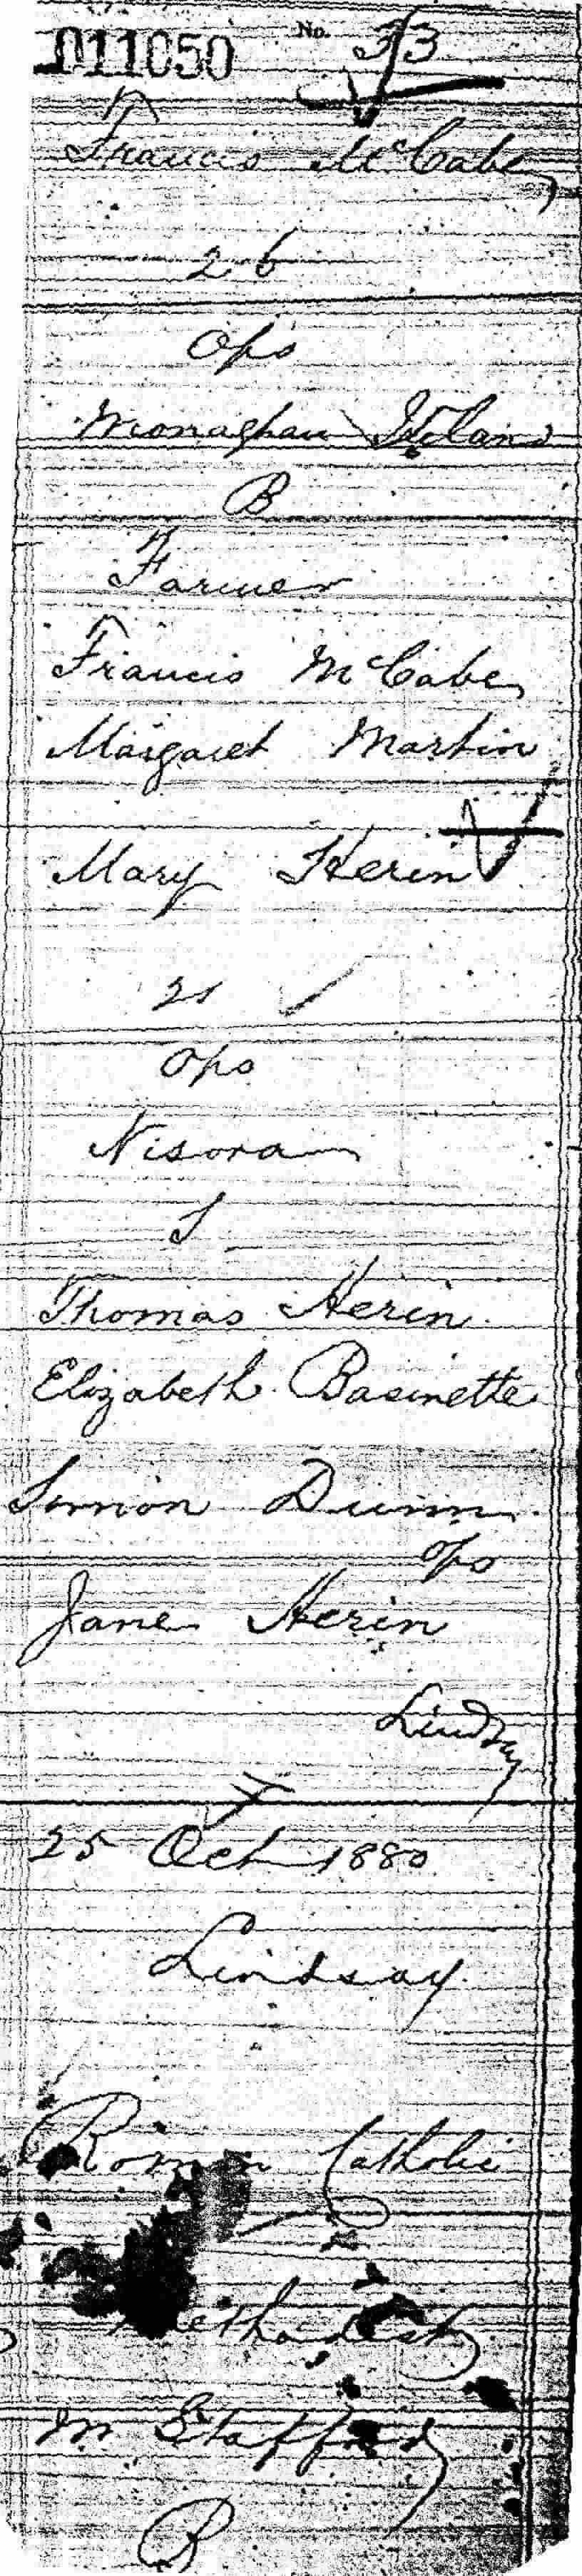 011050 No. 33
Francis McCabe
26
Ops
Monaghan Ireland
B
Farmer
Francis McCabe
Margaret Martin
Mary Herin
21
Ops
Nisora
S
Thomas Herin
Elizabeth Basinette
Simon Dunn
Ops
Jane Herin
Lindsay
25 Oct 1880
Lindsay
Roman Catholic
Methodist
M Stafford
B